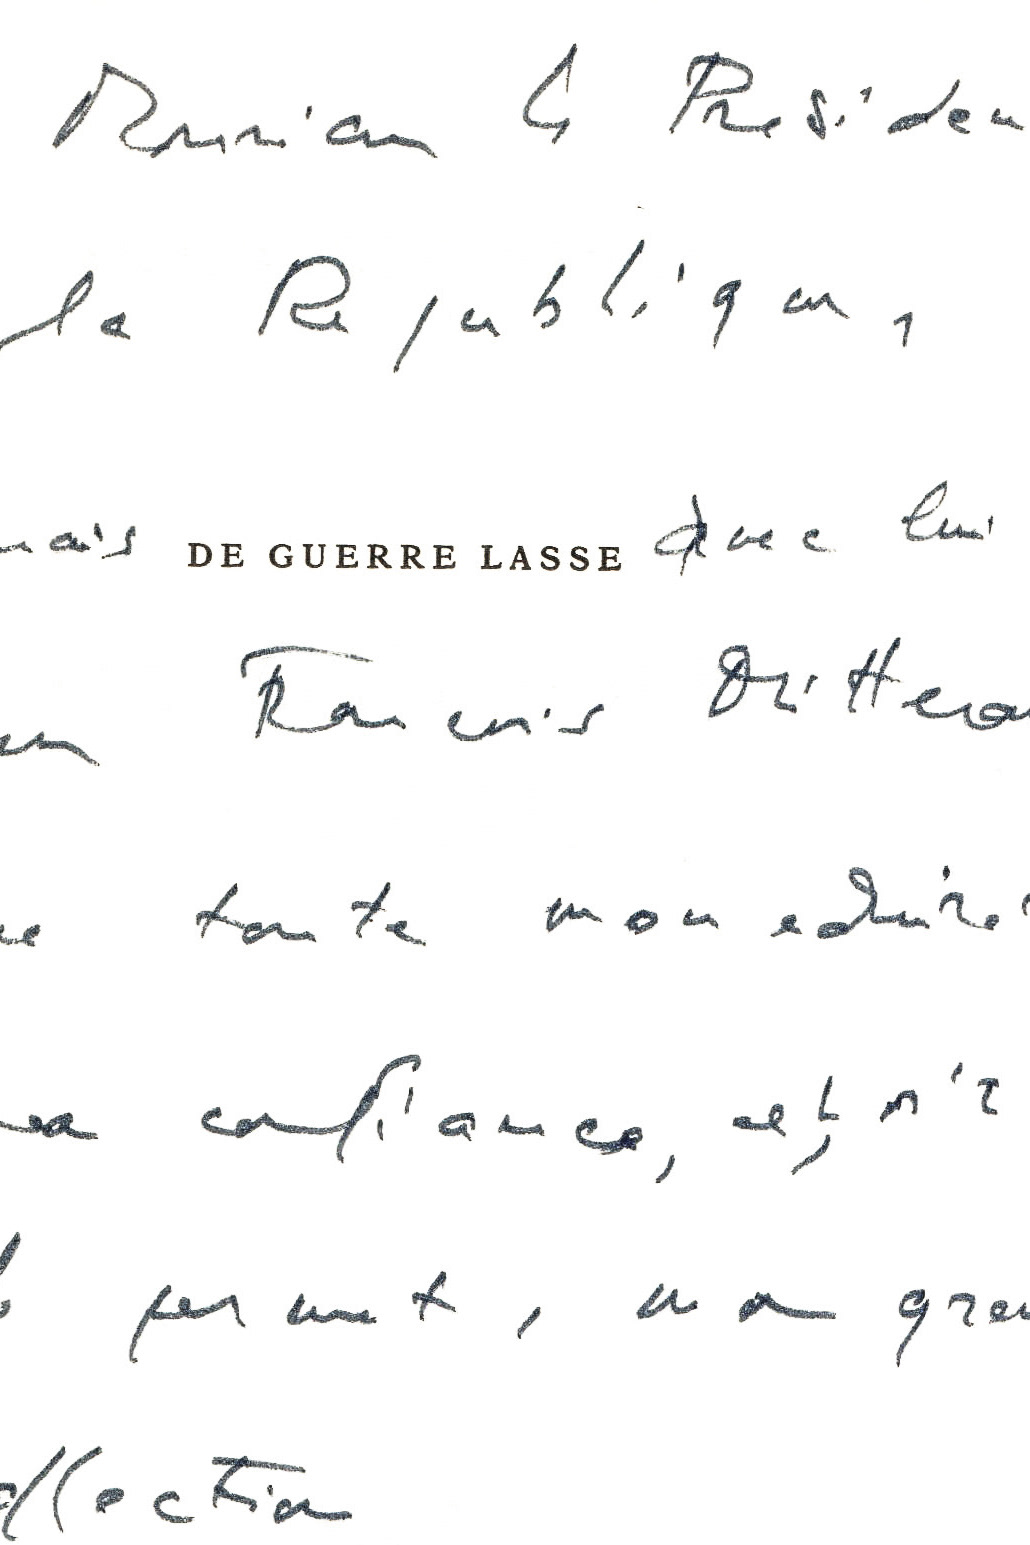 Monsieur le Présiden
la République,
mais DE GUERRE LASSE avec lui
François Mitterra
toute mon admira
confiance, et, s'i
permet, mon gran
ffection